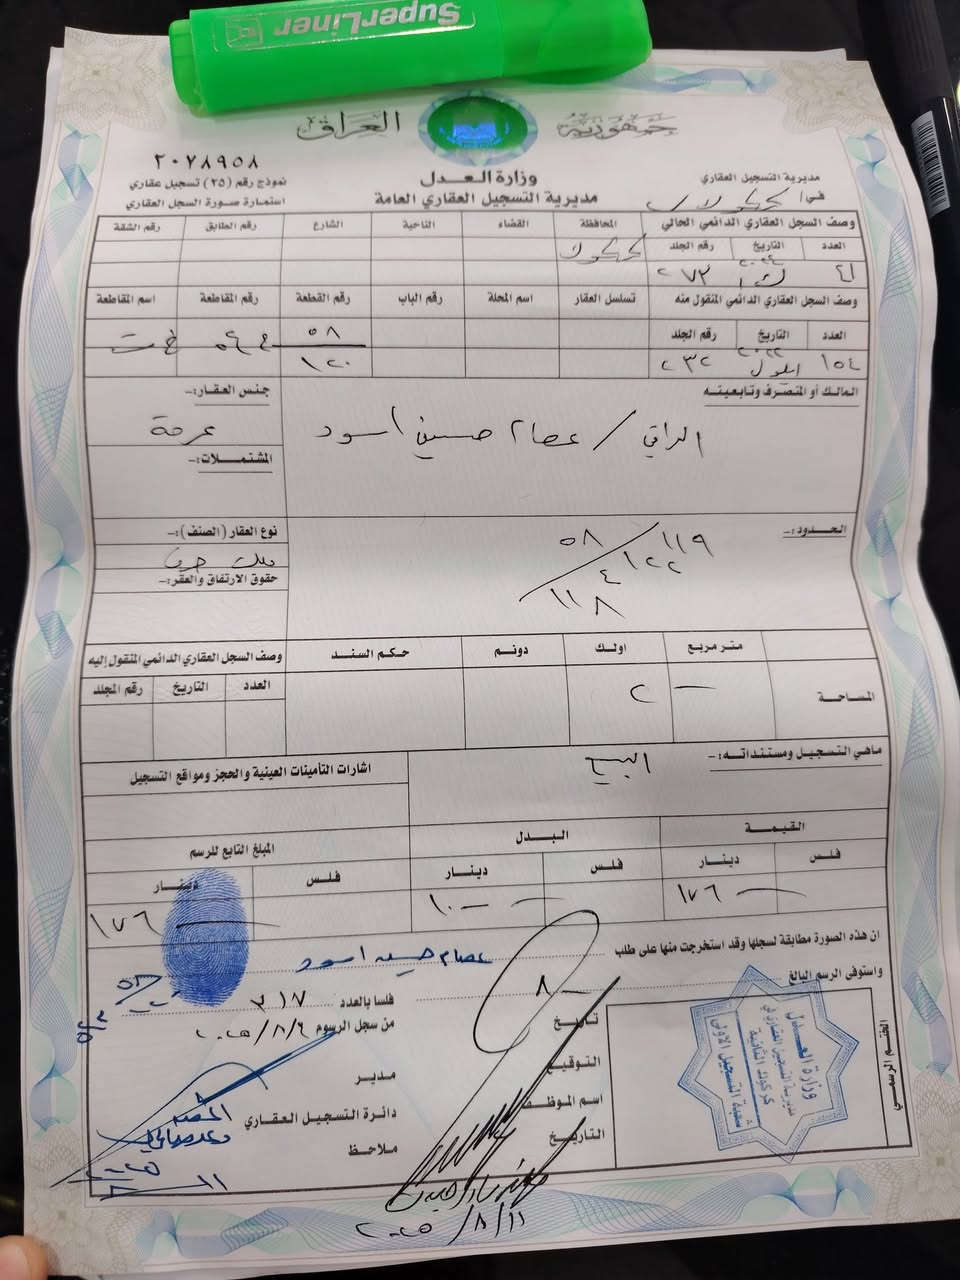 SuperLiner
جمهورية العراق
وزارة العدل
مديرية التسجيل العقاري العامة
مديرية التسجيل العقاري
في / كركوك
٢٠٧٨٩٥٨
نموذج رقم (٢٥) تسجيل عقاري
استمارة صورة السجل العقاري
وصف السجل العقاري الدائمي الحالي المحافظة القضاء الناحية الشارع رقم الطابق رقم الشقة
العدد التاريخ رقم الجلد كركوك
٤١ ٢٧٣
وصف السجل العقاري الدائمي المنقول منه تسلسل العقار اسم المحلة رقم الباب رقم القطعة رقم المقاطعة اسم المقاطعة
العدد التاريخ رقم الجلد ٥٨
١٥٤ ايلول ٢٠٢٢ ٢٣٢ ١٢٠
المالك أو المتصرف وتابعيته جنس العقار:-
العراقي / عصام حسين اسود عرصة
المشتملات:-
الحدود:- نوع العقار (الصنف):-
٥٨ / ١١٩ ملك صرف
١٢٢
٤
١١٨
حقوق الارتفاق والعقر:-
متر مربع اولك دونم حكم السند وصف السجل العقاري الدائمي المنقول إليه
المساحة العدد التاريخ رقم المجلد
— ٢
ماهي التسجيل ومستنداته:- اشارات التأمينات العينية والحجز ومواقع التسجيل
البيع
القيمة البدل المبلغ التابع للرسم
فلس دينار فلس دينار فلس دينار
— ١٧٦ — ١٠ — ١٧٦
ان هذه الصورة مطابقة لسجلها وقد استخرجت منها على طلب عصام حسين اسود
واستوفى الرسم البالغ ٨٠ فلسا بالعدد ٣١٧
تاريخ من سجل الرسوم ٢٠٢٥/٨/٤
التوقيع مدير
اسم الموظف دائرة التسجيل العقاري
التاريخ ملاحظ
٢٠٢٥/٨/١١
الختم الرسمي
وزارة العدل
مديرية التسجيل العقاري في
كركوك الثانية
شعبة التسجيل الاولى